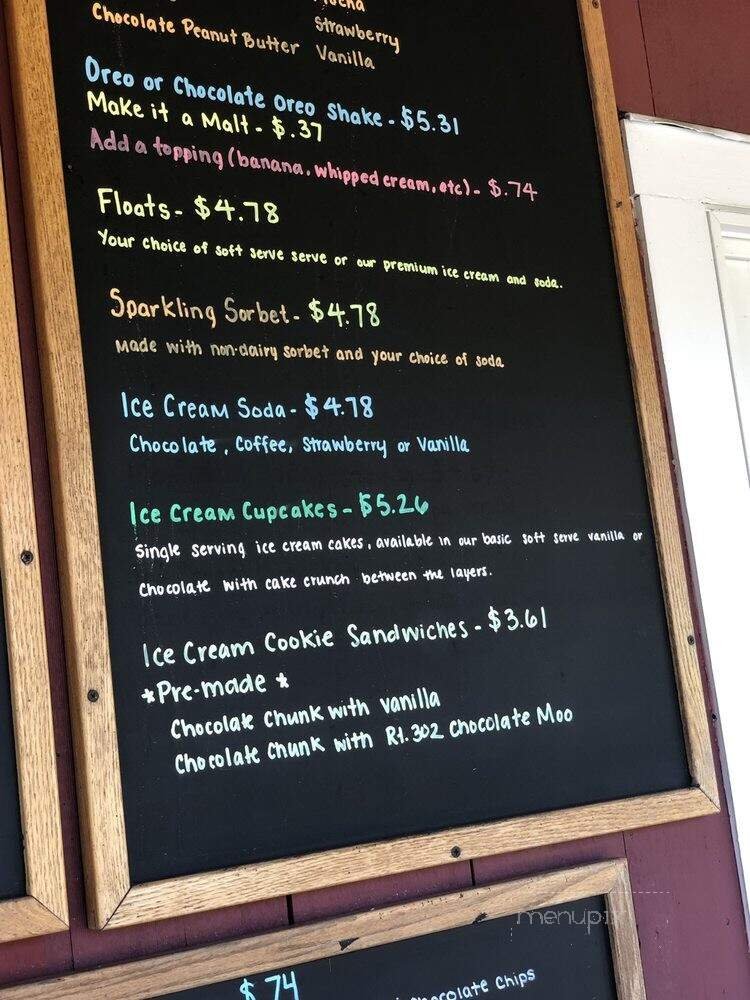 Chocolate Peanut Butter
Strawberry
Vanilla
Oreo or Chocolate Oreo Shake - $5.31
Make it a Malt - $.37
Add a topping (banana, whipped cream, etc) - $.74
Floats - $4.78
Your choice of soft serve serve or our premium ice cream and soda.
Sparkling Sorbet - $4.78
Made with non-dairy sorbet and your choice of soda
Ice Cream Soda - $4.78
Chocolate, Coffee, Strawberry or Vanilla
Ice Cream Cupcakes - $5.26
Single serving ice cream cakes, available in our basic soft serve vanilla or
Chocolate with cake crunch between the layers.
Ice Cream Cookie Sandwiches - $3.61
*Pre-made *
Chocolate Chunk with Vanilla
Chocolate Chunk with Rt. 302 Chocolate Moo
menupix
$.74
Chocolate Chips